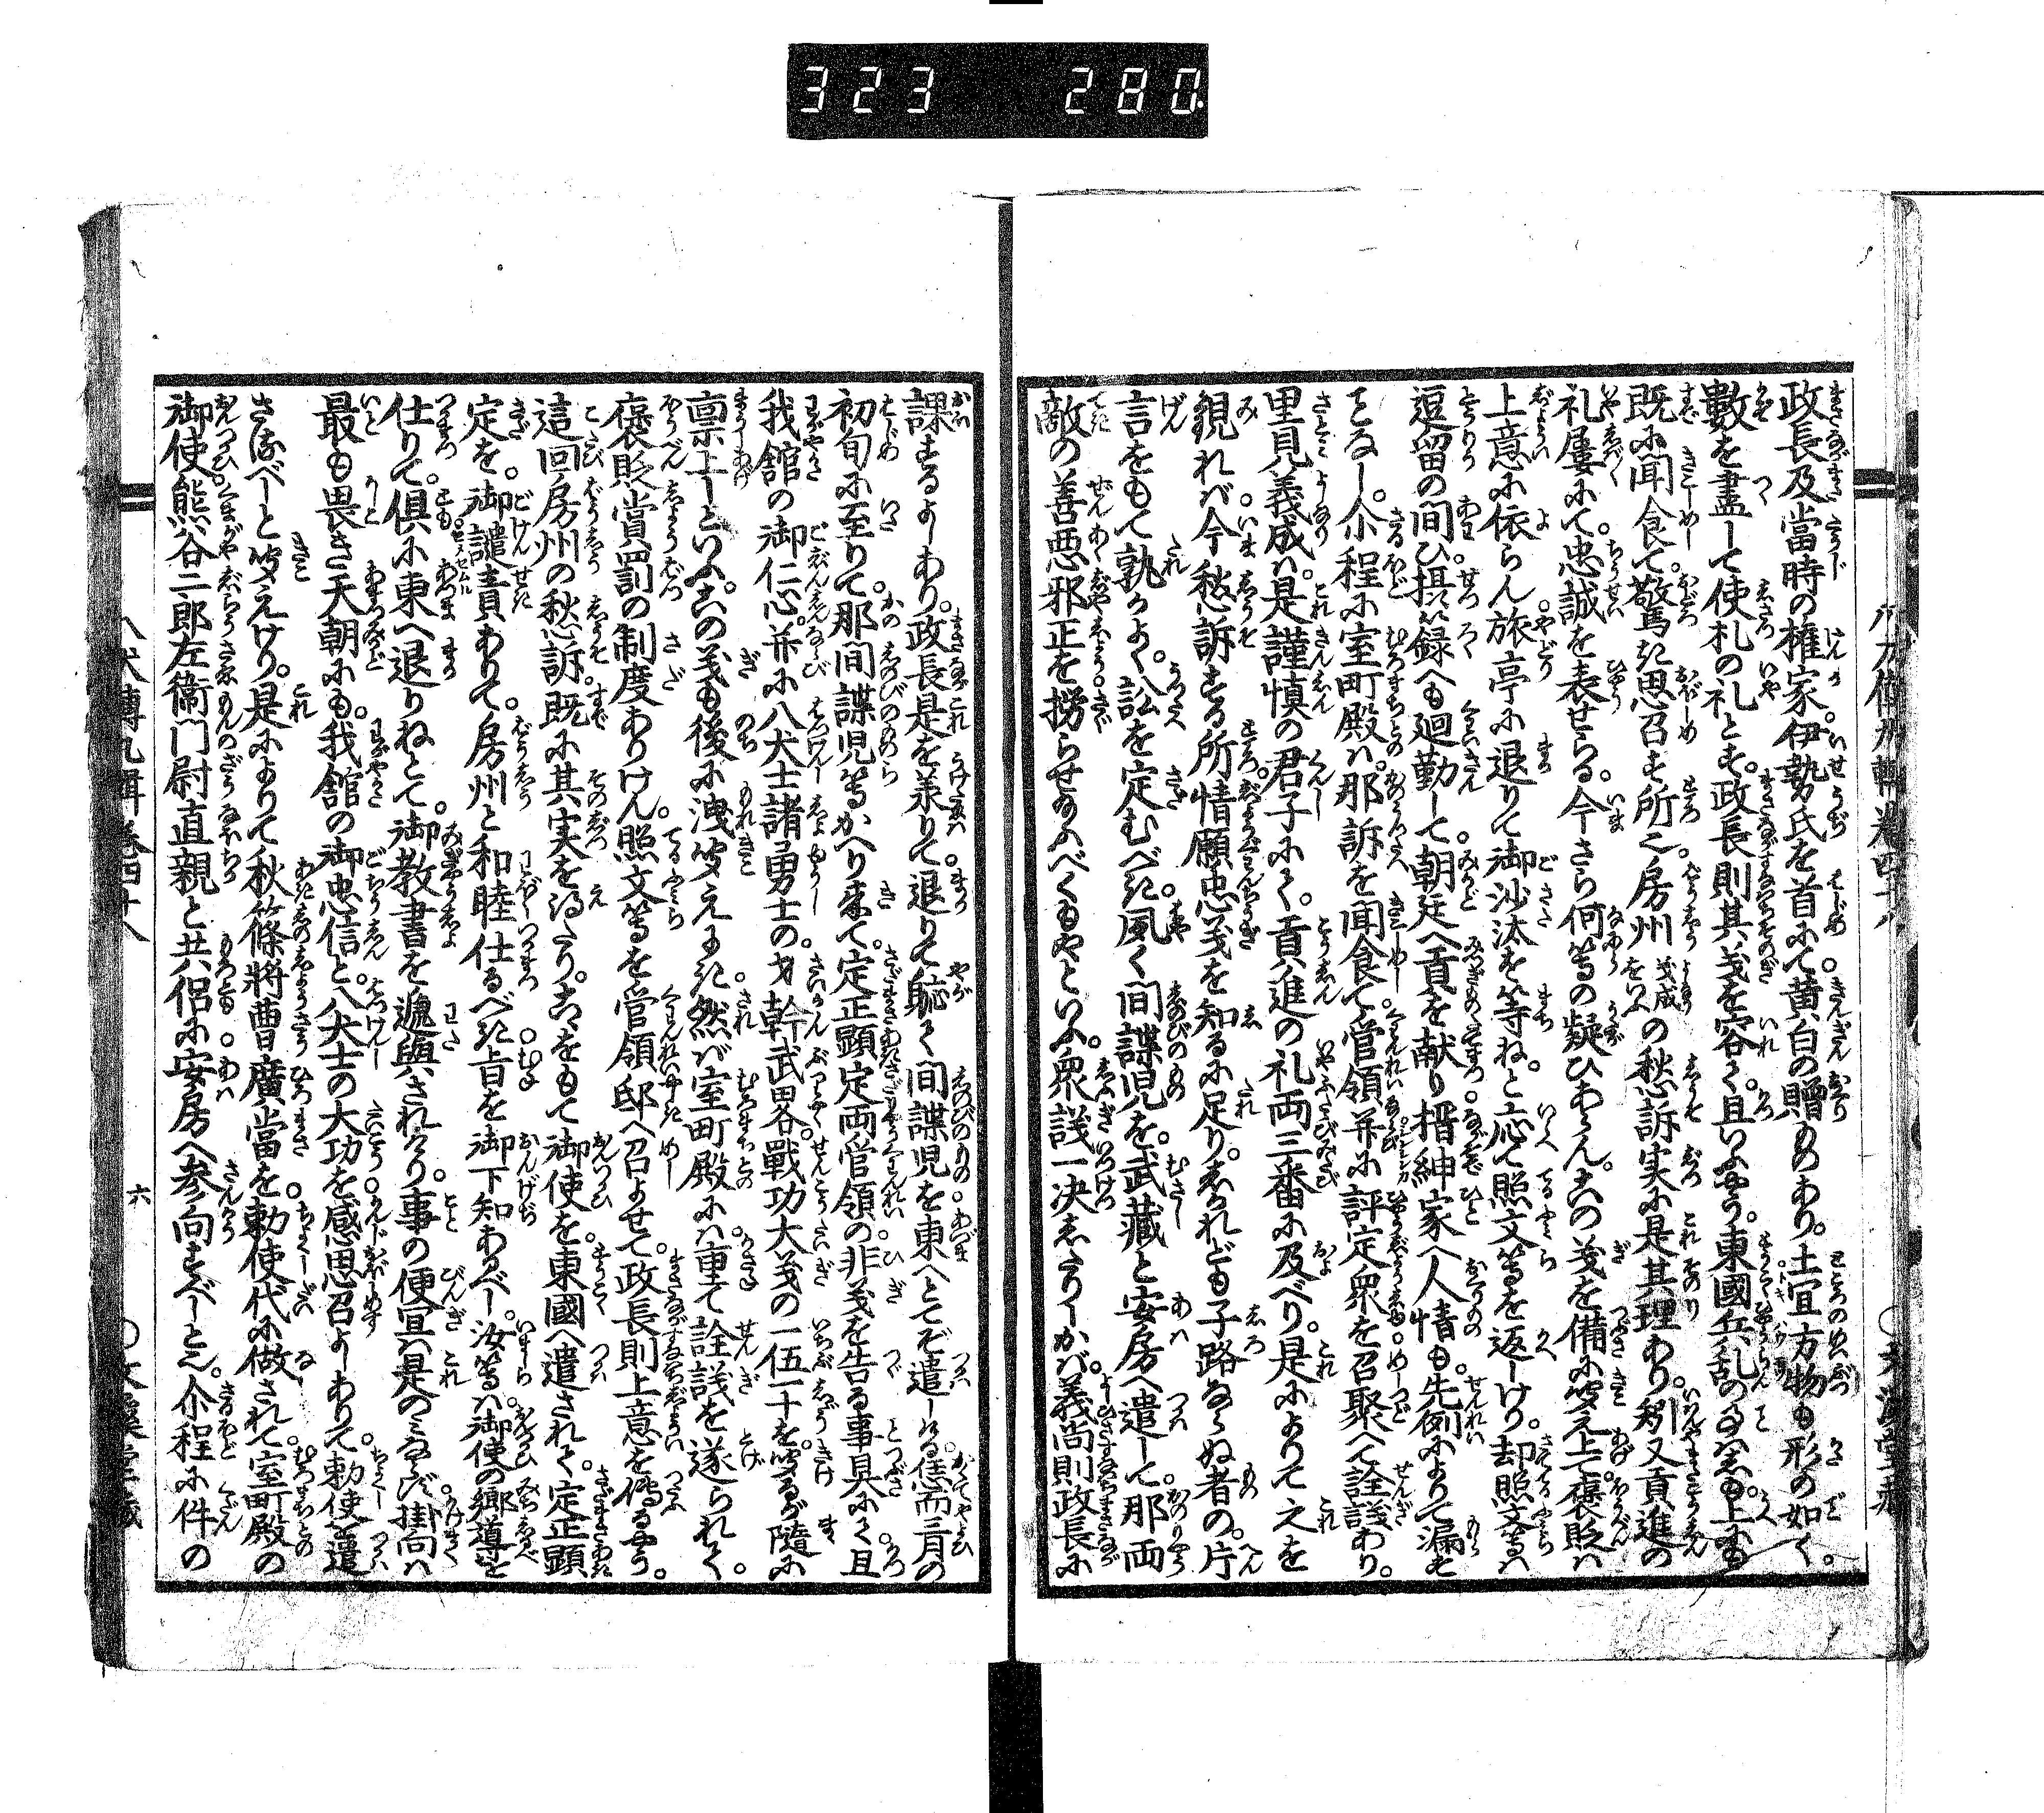 323 280
政長及當時の權家。伊勢氏を首にて黄白の贈ものあり。土宜方物も形の如く。
數を盡して使札の礼とす。政長則其義を容て。且いふやう。東國兵乱の事は上にも
既に聞食て。驚き思召す所也。房州義成をいふの愁訴実に是其理あり。矧又貢進の
礼屡にて。忠誠を表せらる。今さら何等の疑ひあらん。這の義を備に聞え上て。褒貶は
上意に依らん。旅亭に退りて御沙汰を等ねと応て照文等を返しけり。却照文等は
逗留の間ひ。摂録へも廻勤して。朝廷へ貢を献り。搢紳家へ人情も。先例によりて漏す
ことなし。尓程に室町殿は。那訴を聞食て。管領并に評定衆を召聚へて詮議あり。
里見義成は。是謹慎の君子にて。貢進の礼両三番に及べり。是によりて之を
観れば。今愁訴する所。情願忠義を知るに足れり。しかれども子路ならぬ者の。片
言をもて孰かよく。訟を定むべき。夙く間諜児を。武藏と安房へ遣して。那両
敵の善悪邪正を撈らせ給ふべくもやといふ。衆議一决したりしかば。義尚則政長に
課するよしあり。政長是を美りて退りて。恥て間諜児を東へとてぞ遣しける。恁而三月の
初旬に至りて。那間諜児等かへり来て。定正顕定両管領の非義を告る事具にて。且
我館の御仁心。并に八犬士諸勇士の。才幹武略。戰功大義の一伍一十を。聞るが隨に
禀上しといふ。這の義も後に洩聞えにき。然ば室町殿には。重て詮議を遂られて。
褒貶賞罰の制度ありけん。照文等を管領邸へ召よせて。政長則上意を傳るやう。
這回房州の愁訴。既に其実を得たり。這をもて御使を。東國へ遣されて。定正顕
定を。御譴責ありて。房州と和睦仕るべき旨を。御下知あるべし。汝等は御使の郷導を
仕りて。倶に東へ退りねとて。御教書を遞與されたり。事の便宜は是のみならず。掛向は
最も畏き天朝にも。我館の御忠信と。八犬士の大功を感思召よしありて。勅使遣
さるべしと聞えけり。是によりて秋篠將曹廣當を。勅使代に做されて。室町殿の
御使。熊谷二郎左衞門尉直親と共侶に。安房へ参向すべしと也。尓程に件の
八犬傳九輯卷四十八
六